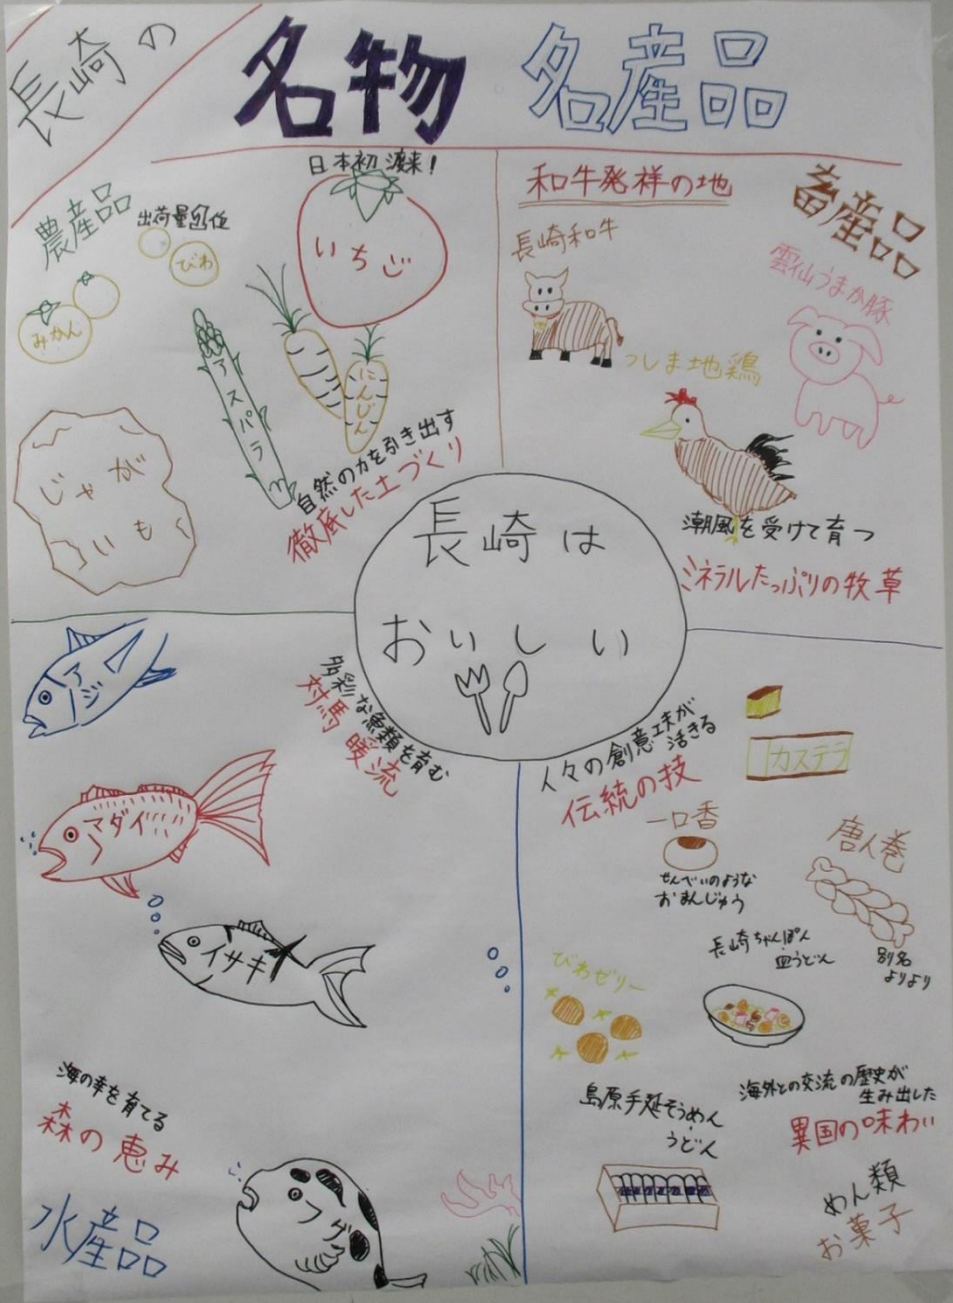 長崎の
名物 名産品
農産品
出荷量1位
びわ
みかん
日本初渡来!
いちご
アスパラ
にんじん
じゃが
いも
自然の力を引き出す
徹底した土づくり
和牛発祥の地
畜産品
長崎和牛
雲仙うまか豚
つしま地鶏
潮風を受けて育つ
ミネラルたっぷりの牧草
長崎は
おいしい
アジ
多彩な魚類を育む
対馬暖流
マダイ
イサキ
海の幸を育てる
森の恵み
水産品
フグ
人々の創意工夫が
活きる
伝統の技
カステラ
一口香
せんべいのような
おまんじゅう
唐人巻
別名
よりより
長崎ちゃんぽん
・皿うどん
びわゼリー
島原手延そうめん
・うどん
海外との交流の歴史が
生み出した
異国の味わい
めん類
お菓子